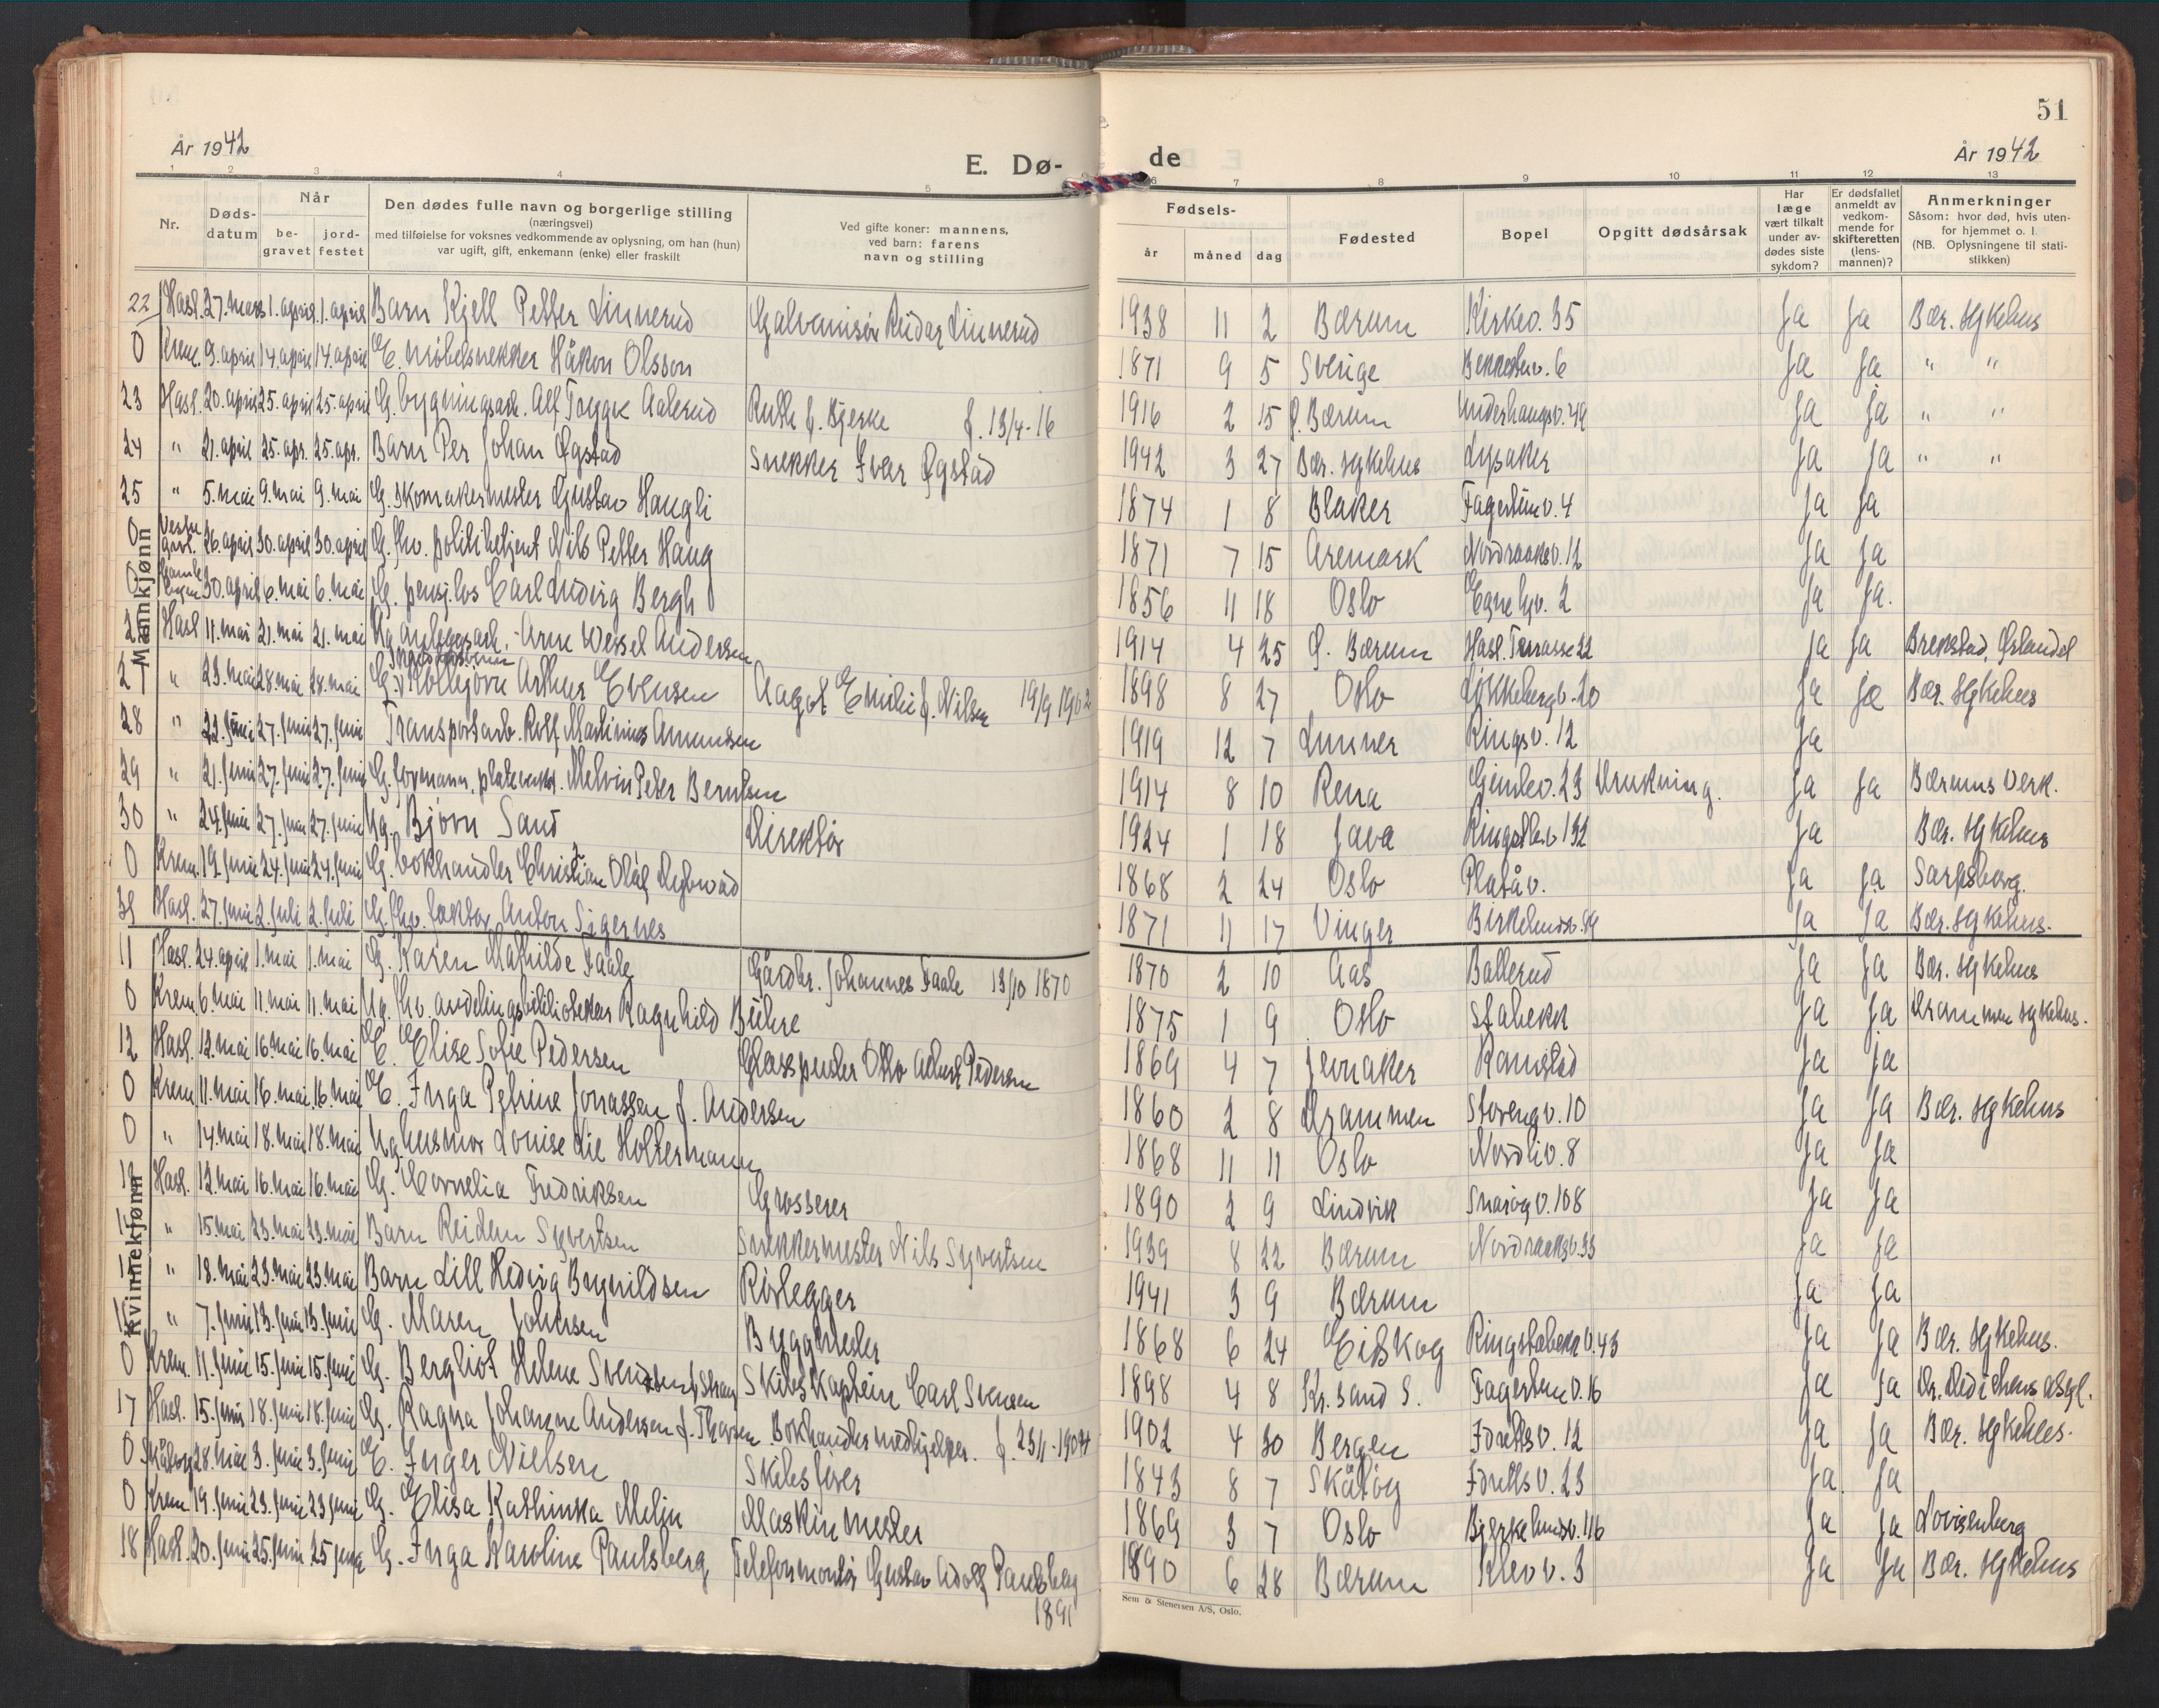 51
År 1942
E. Dø-
de
År 1942
1 2 3 4 5 6 7 8 9 10 11 12 13
Nr.
Døds-
datum
Når
be-
gravet
jord-
festet
Den dødes fulle navn og borgerlige stilling
(næringsvei)
med tilføielse for voksnes vedkommende av oplysning, om han (hun)
var ugift, gift, enkemann (enke) eller fraskilt
Ved gifte koner: mannens,
ved barn: farens
navn og stilling
Fødsels-
år
måned
dag
Fødested
Bopel
Opgitt dødsårsak
Har
læge
vært tilkalt
under av-
dødes siste
sykdom?
Er dødsfallet
anmeldt av
vedkom-
mende for
skifteretten
(lens-
mannen)?
Anmerkninger
Såsom: hvor død, hvis uten-
for hjemmet o. l.
(NB. Oplysningene til stati-
stikken)
Mannkjønn
22 Hasl. 27. mars 1. april 1. april Barn Kjell Petter Linnerud Galvanisør Reidar Linnerud 1938 11 2 Bærum Kirkev. 35 Ja Ja Bær. sykehus
0 Krem. 9. april 14 april 14 april E. møbelsnekker Håkon Olsson 1871 9 5 Sverige 6 Ja Ja " "
23 Hasl. 20. april 25. april 25. april G. bygningsarb. Alf Tryggve Aalerud Ruth f. Bjerke f. 13/4-16 1916 2 15 Ø. Bærum Underhaugsv. 49 Ja Ja " "
24 " 21. april 25. apr. 25. apr. Barn Per Johan Øgstad Snekker Ivar Øgstad 1942 3 27 Bær. sykehus Lysaker Ja Ja " "
25 " 5. mai 9. mai 9. mai G. skomakermester Gustav Haugli 1874 1 8 Blaker Fagerliv. 4 Ja Ja
0 Vestre grvl. 26. april 30. april 30. april G. fhv. politibetjent Nils Petter Haug 1871 7 15 Aremark Nordraaksv. 12 Ja Ja
0 Gamle byen 30. april 6. mai 6. mai G. pensj. los Carl Ludvig Bergh 1856 11 18 Oslo Egnehjv. 2 Ja Ja.
26 Hasl 11. mai 21. mai 21. mai Ug. anleggsarb. Arne Wessel Andersen 1914 4 25 Ø. Bærum Hasl. Terrasse 22 Ja Ja Brekstad, Ørlandet
27 " 23. mai 28. mai 28. mai G. Kolbjørn Arthur Evensen Aagot Emilie f. Nilsen 19/9 1902 1898 8 27 Oslo Lökkebergv. 20 Ja Ja Bær. sykehus
28 " 22. juni 27. juni 27. juni Transportarb. Rolf Martinius Amundsen 1919 12 7 Lunner Ringsv. 12 Ja
29 " 21. juni 27. juni 27. juni G. formann, plateverkst. Melvin Peter Berntsen 1914 8 10 Rena Gimlev. 23 Drukning. Ja Ja Bærums Verk.
30 " 24. juni 27. juni 27. juni Ug. Bjørn Sand Direktør 1924 1 18 Java 132 Ja Bær. sykehus
0 Krem. 19. juni 24. juni 24. juni G. bokhandler Christian Olaf Dybwad 1868 2 24 Oslo Platåv. Ja Ja Sarpsborg.
31 Hasl. 27. juni 2. juli 2. juli G. fhv. faktor Anton Sigernes 1871 11 17 Vinger Birkelundsv. 89 Ja Ja Bær. sykehus.
Kvinnekjønn
11 Hasl. 24. april 1. mai 1. mai G. Karen Mathilde Faale Gårdbr. Johannes Faale 13/10 1870 1870 2 10 Aas Ballerud Ja Ja Bær. sykehus
0 Krem. 6. mai 11. mai 11. mai Ug. fhv. avdelingsbibliotekar Ragnhild Bühre 1875 1 9 Oslo Stabekk Ja Ja Drammen sykehus.
12 Hasl. 12. mai 16. mai 16. mai E. Elise Sofie Pedersen Glasspuster Otto Albert Pedersen 1869 4 7 Jevnaker Ramstad Ja Ja
0 Krem 11. mai 16. mai 16. mai E. Inga Petrine Jonassen f. Andersen 1860 2 8 Drammen Storengv. 10 Ja Ja Bær. sykehus
0 " 14. mai 18. mai 18. mai Ug. husmor Louise Lie Holtermann 1868 11 11 Oslo Nordliv. 8 Ja Ja
13 Hasl. 12. mai 16. mai 16. mai G. Cornelia Fredriksen Grosserer 1890 2 9 Lindvik Snarøyv. 108 Ja Ja
14 " 15. mai 23. mai 23. mai Barn Reidun Syvertsen Snekkermester Nils Syvertsen 1939 8 22 Bærum Nordraaksv. 33 Ja Ja
15 " 18. mai 23. mai 23. mai Barn Lill Hedvig Brynildsen Rörlegger 1941 3 9 Bærum Ja Ja
16 " 7. juni 13. juni 13. juni G. Maren Johnsen Byggmester 1868 6 24 Eidskog Ringstabekkv. 43 Ja Ja Bær. sykehus.
0 Krem. 11. juni 15. juni 15. juni G. Bergliot Helene Svendsen Skibskaptein Carl Svensen 1898 4 8 Kr. sand S. Fagertunv. 16 Ja Ja
17 Hasl. 15. juni 18. juni 18. juni G. Ragna Johanne Andersen f. Thorsen Bokhandlermedhjelper. f. 23/1-1904 1902 4 30 Bergen Idrettsv. 12 Ja Ja Bær. sykehus.
0 Skåtøy 28. mai 3. juni 3. juni E. Inger Nielsen Skibsfører 1843 8 7 Skåtøy Idrettsv. 23 Ja Ja
0 Krem. 19. juni 23. juni 23 juni G. Elisa Kathinka Melin Maskinmester 1869 3 7 Oslo Bjerkelundsv. 116 Ja Ja Lovisenberg
18 Hasl. 20. juni 25. juni 25 juni G. Inga Karoline Paulsberg Telefonmontør Gustav Adolf Paulsberg 1891 1890 6 28 Bærum Klevv. 3 Ja Ja Bær. sykehus
Sem & Stenersen A/S, Oslo.